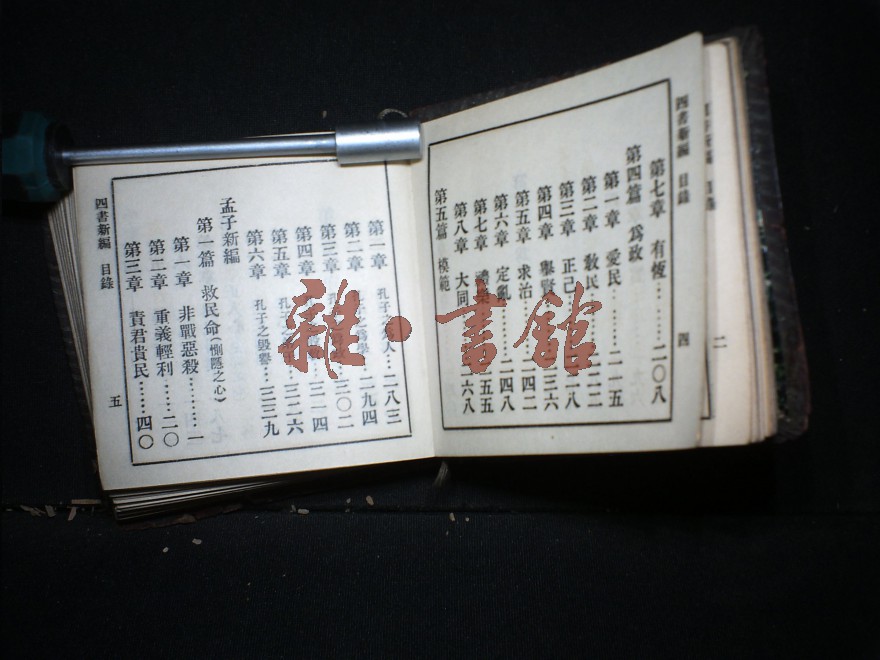 四書新編 目錄 四
第七章 有恆………二〇八
第四篇 爲政
第一章 愛民……二一五
第二章 教民……二二二
第三章 正己……二二八
第四章 舉賢……二三六
第五章 求治……二四二
第六章 定亂……二四八
第七章 五五
第八章 大同 六八
第五篇 模範
第一章 孔子之 人…二八三
第二章 孔子之 二九四
第三章 三〇二
第四章 三一四
第五章 孔子之 三二六
第六章 孔子之毀譽…三三九
孟子新編
第一篇 救民命(惻隱之心)
第一章 非戰惡殺………一
第二章 重義輕利……二〇
第三章 責君貴民……四〇
四書新編 目錄 五
二
雜·書館